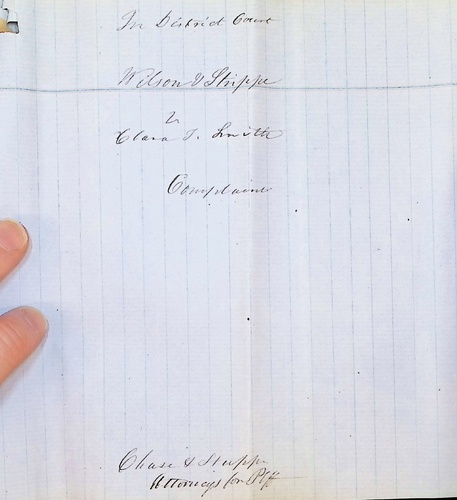 In District Court
Wilson & Shippe
v
Clara T. Smith
Complaint
Chase & Shippe
Attorneys for Plff